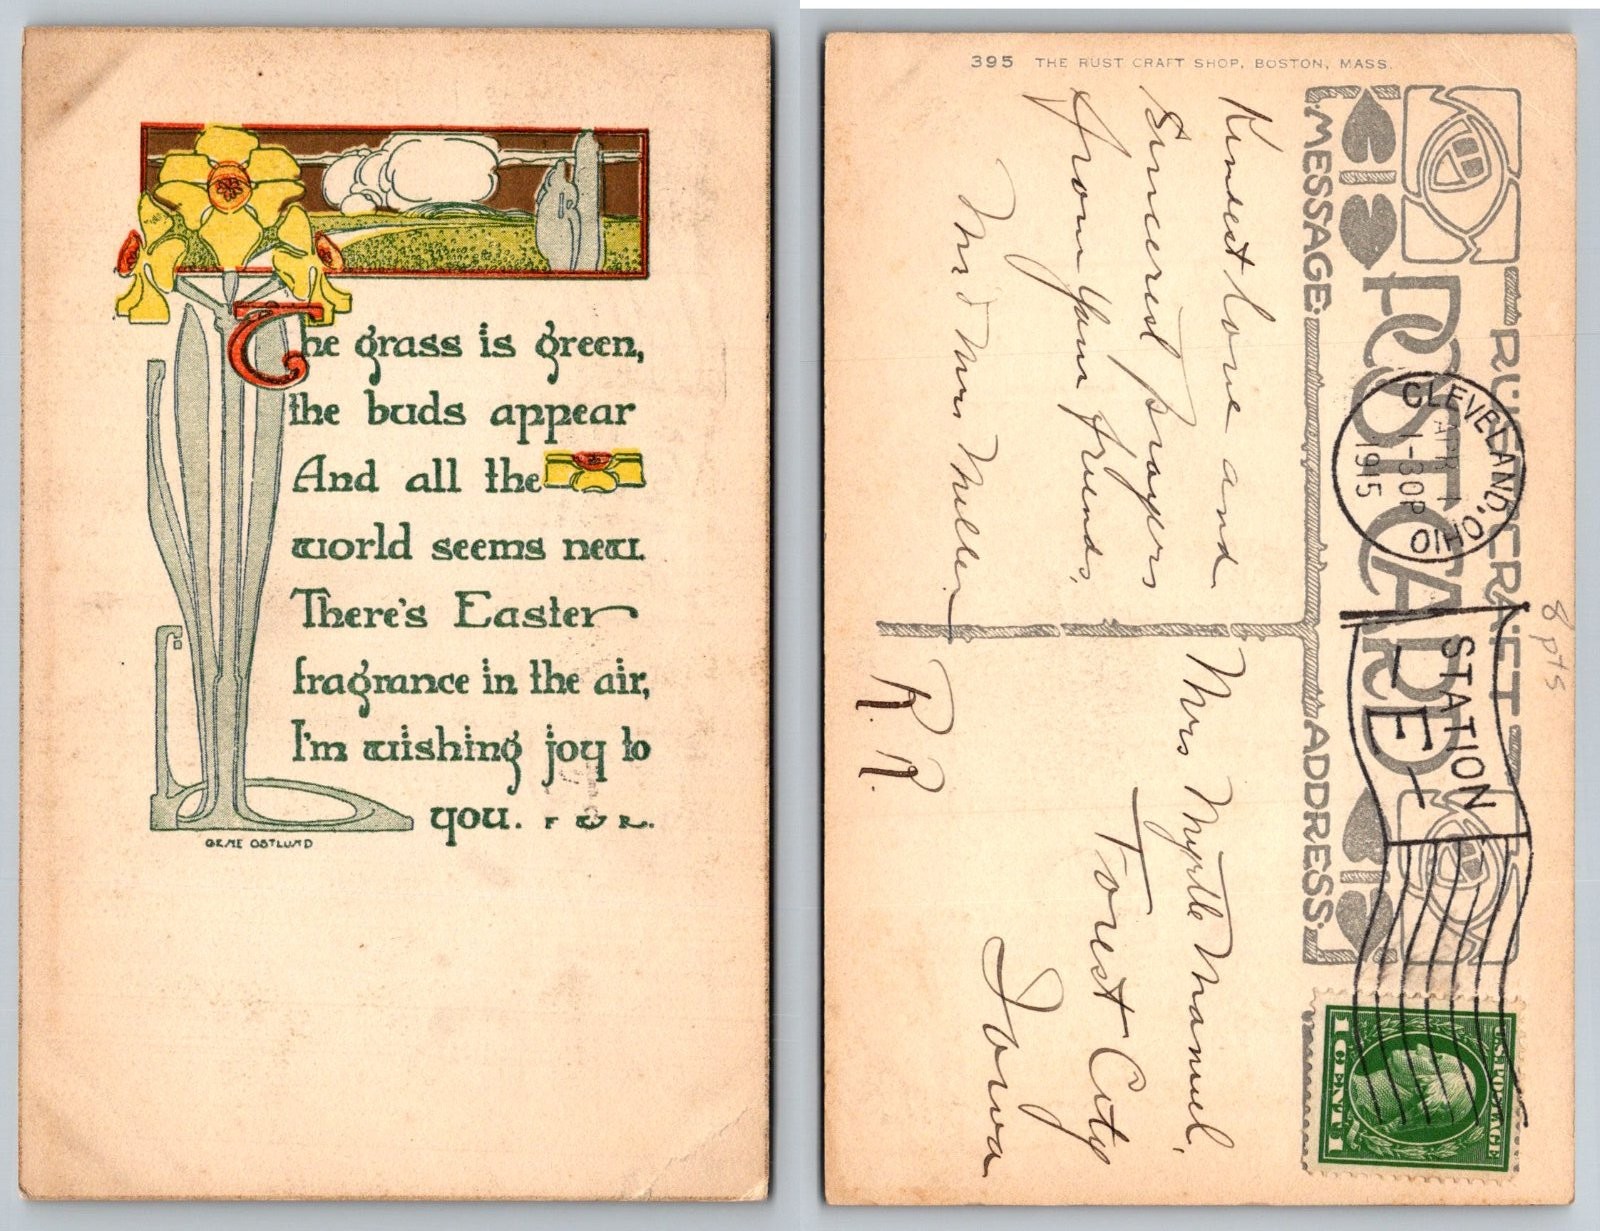 The grass is green,
the buds appear
And all the
world seems new.
There's Easter
fragrance in the air,
I'm wishing joy to
you.
GENE OSTLUND
395 THE RUST CRAFT SHOP, BOSTON, MASS.
RUST CRAFT
POST CARD
MESSAGE:
ADDRESS:
CLEVELAND, OHIO
APR 1
1-30P
1915
STATION
E
U.S. POSTAGE
1 CENT 1
8 pts
Kindest love and
Sincerest prayers
from your friends,
Mr & Mrs Miller
Mrs Myrtle Manuel,
Forest City
Iowa
R. R.